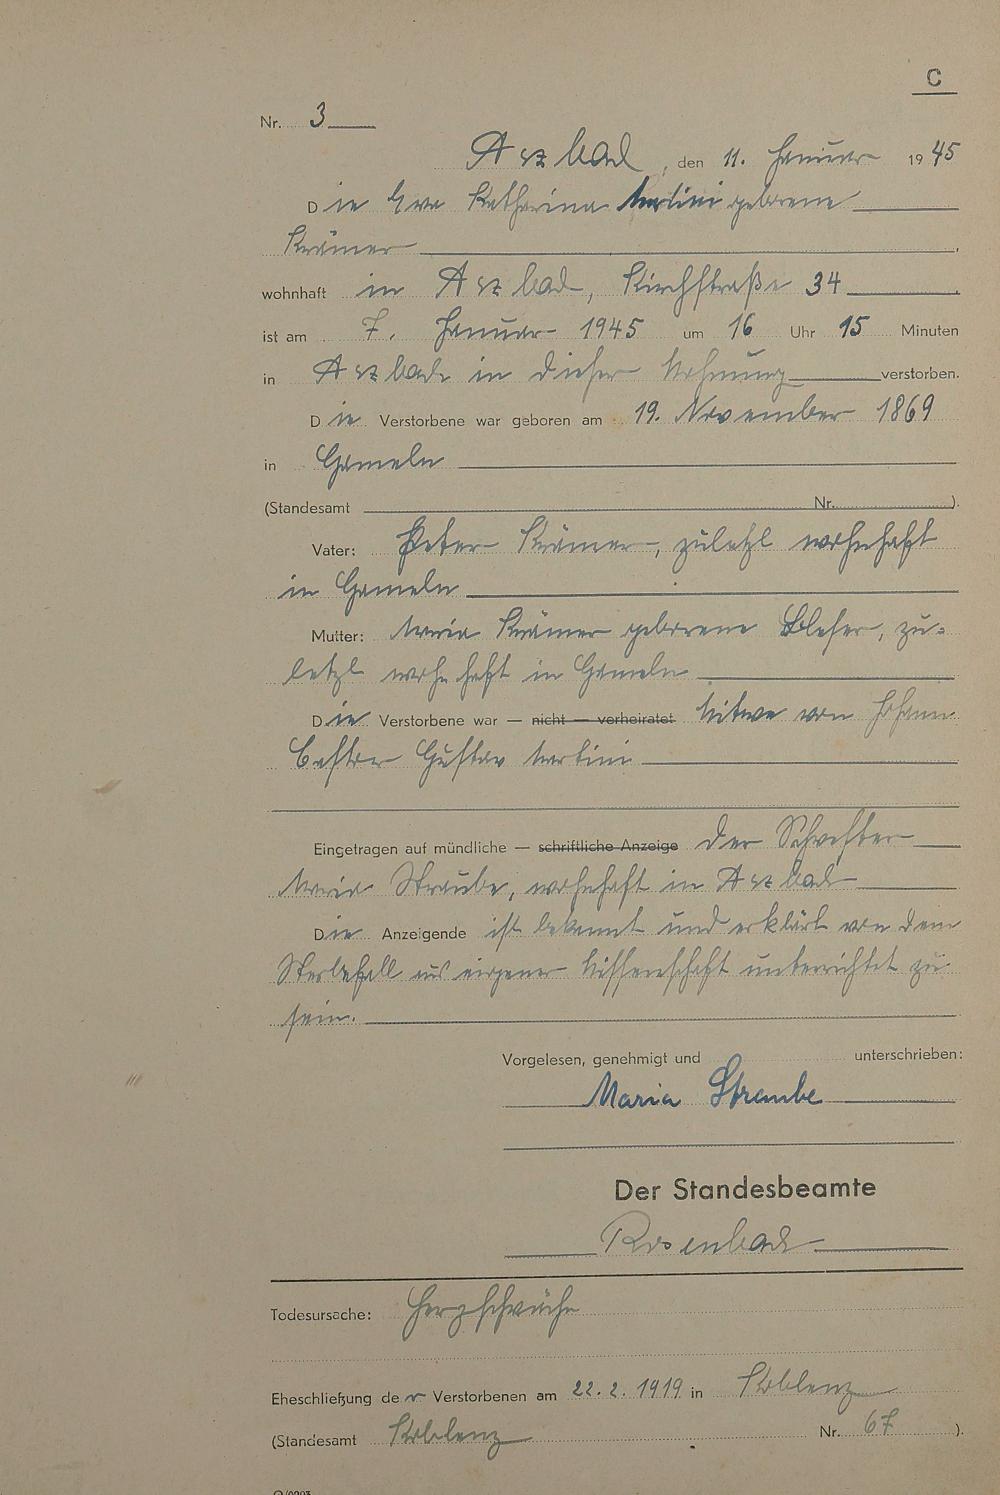 C
Nr. 3
Arzbach, den 11. Januar 1945
Die Eva Katharina Martini geborene
Krämer
wohnhaft in Arzbach, Kirchstraße 34
ist am 7. Januar 1945 um 16 Uhr 15 Minuten
in Arzbach in dieser Wohnung verstorben.
Die Verstorbene war geboren am 19. November 1869
in
(Standesamt Nr. ).
Vater: Peter Krämer, zuletzt wohnhaft
in
Mutter: Maria Krämer geborene Bleser, zu-
letzt wohnhaft in
Die Verstorbene war — nicht — verheiratet Witwe von Johann
Gustav Martini
Eingetragen auf mündliche — schriftliche Anzeige der Schwester
Maria Straube, wohnhaft in Arzbach
Die Anzeigende ist bekannt und erklärt von dem
Sterbefall aus eigener Wissenschaft unterrichtet zu
sein.
Vorgelesen, genehmigt und unterschrieben:
Maria Straube
Der Standesbeamte
Rosenbach
Todesursache: Herzschwäche
Eheschließung der Verstorbenen am 22.2.1919 in Koblenz
(Standesamt Koblenz Nr. 67 ).